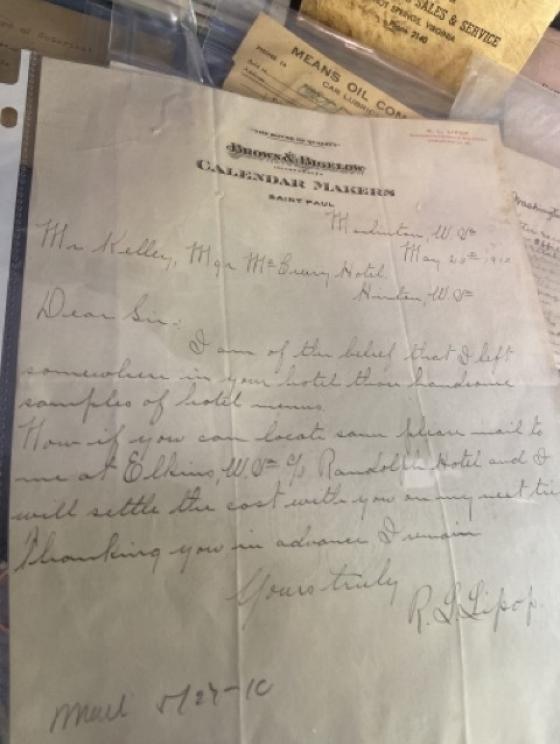 SALES & SERVICE
HOT SPRINGS, VIRGINIA
PHONE 2140
PHONE 14
MEANS OIL COM
CAR LUBRIC
"THE HOUSE OF QUALITY"
BROWN & BIGELOW
INCORPORATED
CALENDAR MAKERS
SAINT PAUL
Marlinton, W. Va
May 26th, 1910
Mr Kelley, Mgr McCreery Hotel
Hinton, W. Va
Dear Sir:
I am of the belief that I left
somewhere in your hotel those handsome
samples of hotel menus.
Now if you can locate same please mail to
me at Elkins, W. Va c/o Randolph Hotel and I
will settle the cost with you on my next tri
Thanking you in advance I remain
Yours truly
R. L. Lipop.
5/27-10
Washingto